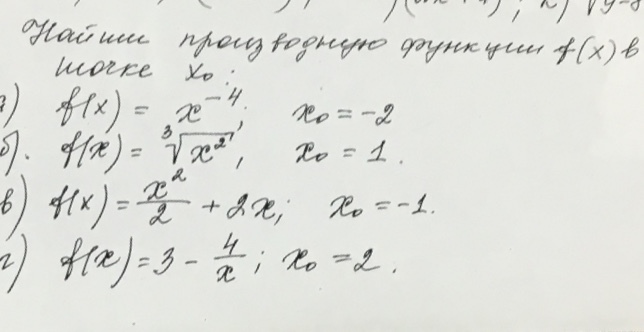 Найти производную функции f(x) в
точке x₀:
а) f(x) = x⁻⁴; x₀ = -2
б). f(x) = ∛x², x₀ = 1.
в) f(x) = x²/2 + 2x; x₀ = -1.
г) f(x) = 3 - 4/x; x₀ = 2.